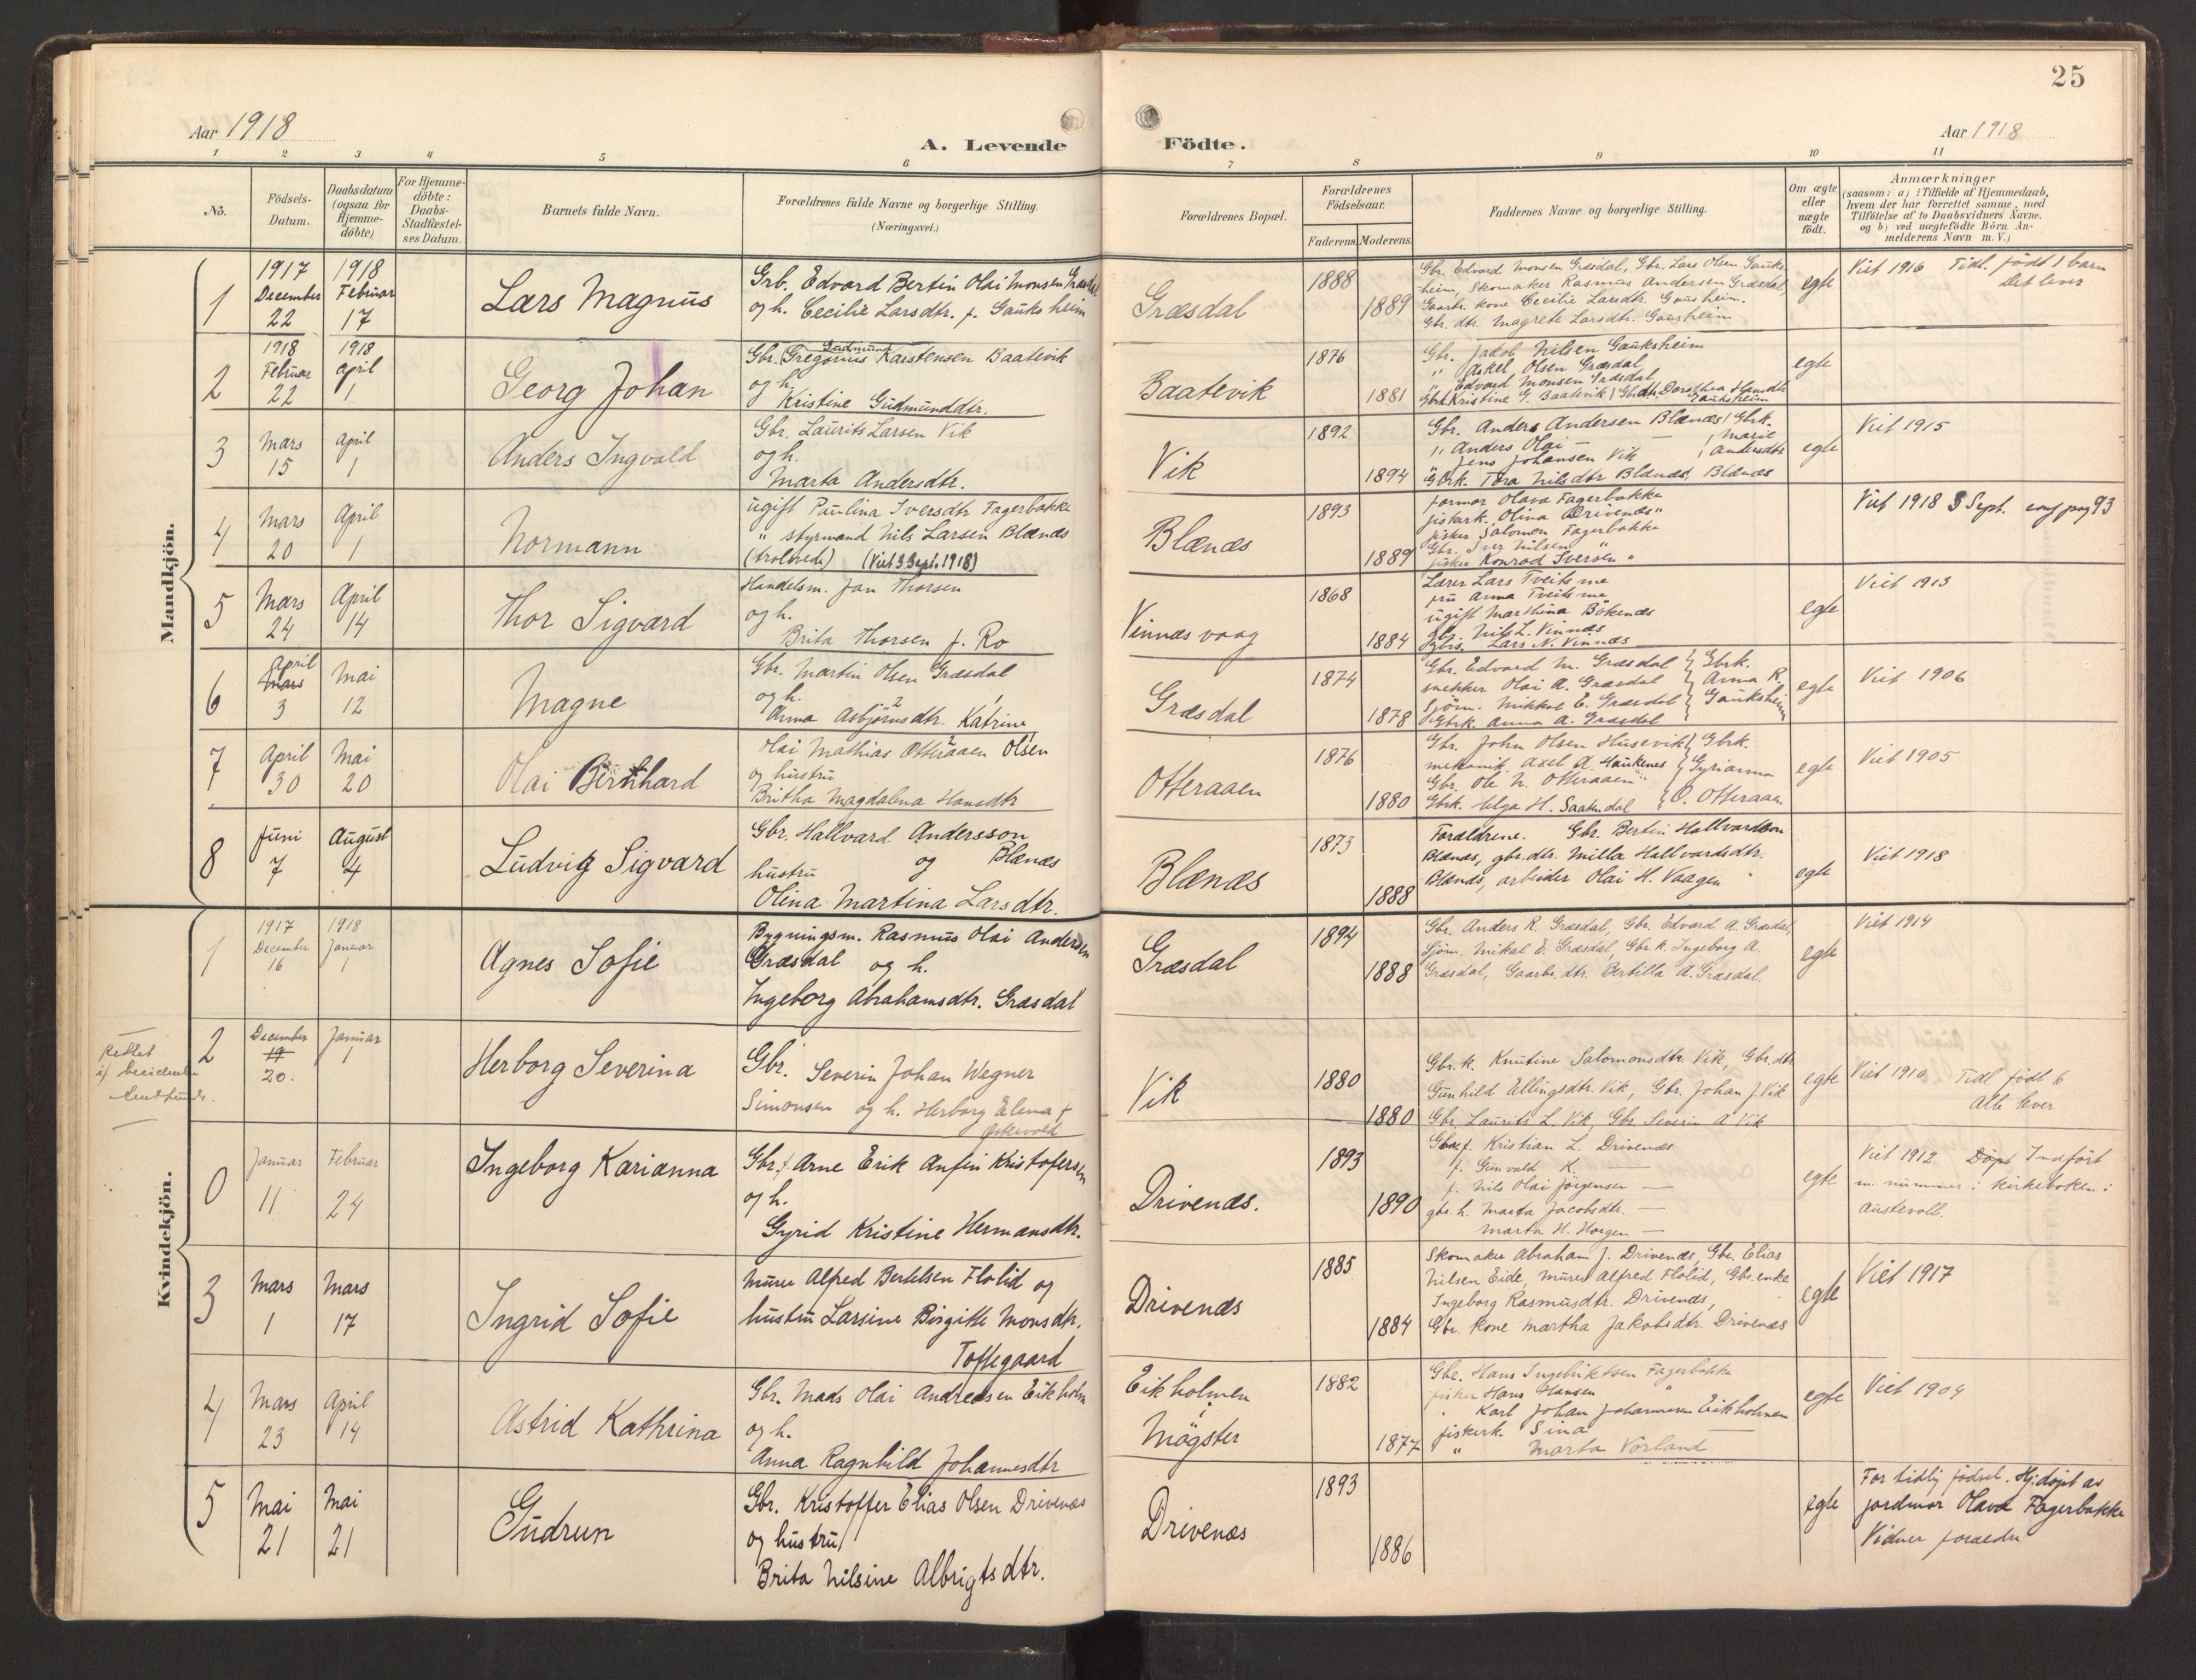 25
Aar 1918
A. Levende Födte.
Aar 1918
1 2 3 4 5 6 7 8 9 10 11
No.
Födsels-Datum.
Daabsdatum (ogsaa for Hjemme-döbte)
For Hjemme-döbte: Daabs-Stadfæstel-ses Datum.
Barnets fulde Navn.
Forældrenes fulde Navne og borgerlige Stilling.
(Næringsvei.)
Forældrenes Bopæl.
Forældrenes Födselsaar.
Faderens. Moderens.
Faddernes Navne og borgerlige Stilling.
Om ægte eller uægte födt.
Anmærkninger
(saasom: a) i Tilfælde af Hjemmedaab,
hvem der har forrettet samme, med
Tilföielse af to Daabsvidners Navne.
og b) ved uægtefödte Börn An-
melderens Navn m. V.)
Mandkjön.
1
1917 December 22
1918 Februar 17
Lars Magnus
Grb. Edvard Bertin Olai Monsen Græsdal
og h. Cecilie Larsdtr. f. Gauksheim
Græsdal
1888
1889
Gbr. Edvard Monsen Græsdal, Gbr. Lars Olsen Gauks-
heim, Skomaker Rasmus Andersen Græsdal,
Gaardr. kone Cecilie Larsdtr. Gausheim.
Gbr. dtr. Magrete Larsdtr. Gausheim
egte
Viet 1916 Tidl. født 1 barn
Det lever
2
1918 Februar 22
1918 April 1
Georg Johan
Gudmund
Gbr. Gregorius Karstensen Baatevik
og h.
Kristine Gudmunddtr.
Baatevik
1876
1881
Gbr. Jakob Nilsen Gauksheim
" Askel Olsen Græsdal
" Edvard Monsen Græsdal
Gbrk Kristine G. Baatevik / Gbdtr. Dorothea Hansdtr
Gauksheim
egte
3
Mars 15
April 1
Anders Ingvald
Gbr. Laurits Larsen Vik
og h.
Marta Andersdtr.
Vik
1892
1894
Gbr. Anders Andersen Blænæs / Gbrk.
" Anders Olai — Marie
" Jens Johansen Vik Andersdtr
Gbrk. Tora Nilsdtr Blænæs, Blænæs
egte
Viet 1915
4
Mars 20
April 1
Normann
ugift Paulina Iversdtr Fagerbakke
" styrmand Nils Larsen Blænæs
(trolovede) (Viet 3 Sept. 1918)
Blænæs
1893
1889
jormor Olava Fagerbakke
fiskerk. Olina Drivenes "
fisker Salomon Fagerbakke
Gbr. Iver Nilsen "
fisker Konrad Iversen "
Viet 1918 3 Sept. pag 93
5
Mars 24
April 14
Thor Sigvard
Handelsm. Jan Thorsen
og h.
Brita Thorsen f. Ro
Vinnæsvaag
1868
1884
Lærer Lars Tveitsme
fru Anna Tveitsme
ugift Marthina Bökenæs
gbr. Nils L. Vinnæs
gbrs. Lars N. Vinnæs
egte
Viet 1913
6
April Mars 3
Mai 12
Magne
Gbr. Martin Olsen Græsdal
og h. 2 1
Anna Asbjörnsdtr. Katrine
Græsdal
1874
1878
Gbr. Edvard M. Græsdal } Gbrk.
snekker Olai A. Græsdal } Anna R.
Sjöm. Mikkal E. Græsdal } Gauksheim
Gbrk. Anna A. Græsdal
egte
Viet 1906
7
April 30
Mai 20
Olai Bernhard
Olai Mathias Otteraaen Olsen
og hustru
Britha Magdalena Hansdtr
Otteraaen
1876
1880
Gbr. John Olsen Husevik } Gbrk.
mekanik. Axel A. Haukenes } Gyrianna
Gbr. Ole N. Otteraaen "
Gbrk. Olga H. Saatendal } O. Otteraaen
egte
Viet 1905
8
Juni 7
August 4
Ludvig Sigvard
Gbr. Hallvard Andersson
hustru og Blænæs
Olina Martina Larsdtr.
Blænæs
1873
1888
Forældrene. Gbr. Bertin Hallvardson
Blænæs, gbr. dtr. Milla Hallvardsdtr.
Blænæs, arbeider Olai H. Vaagen
egte
Viet 1918
Kvindekjön.
1
1917 December 16
1918 Januar 1
Agnes Sofie
Bygningsm. Rasmus Olai Andersen
Græsdal og h.
Ingeborg Abrahamsdtr. Græsdal
Græsdal
1894
1888
Gbr. Anders R. Græsdal, Gbr. Edvard A. Græsdal,
Sjöm. Mikal E. Græsdal, Gbr. k. Ingeborg A.
Græsdal, Gaardbr. dtr. Bertilla A. Græsdal.
egte
Viet 1914
Rettet
2
December 19 20.
Januar 1
Herborg Severina
Gbr. Severin Johan Wegner
Simonsen og h. Herborg Elena f.
Østervold
Vik
1880
1880
Gbr. k. Knutine Salomonsdtr. Vik, Gbr. dtr.
Gunhild Ellingsdtr. Vik, Gbr. Johan J. Vik
Gbr. Laurits L. Vik, Gbr Severin A Vik
egte
Viet 1910 Tidl født 6
Alle lever
0
Januar 11
Februar 24
Ingeborg Karianna
Gbr. f. Arne Erik Anfin Kristofersen
og h.
Gyrid Kristine Hermansdtr.
Drivenæs.
1893
1890
Gbr. f. Kristian L. Drivenæs
f. Gunvald K. —
f. Nils Olai Jörgensen —
gbr. h. Marta Jacobsdtr. —
Marta H. Horgen —
egte
Viet 1912 Døpt Indført
m. nummer i kirkeboken i
Austevoll.
3
Mars 1
Mars 17
Ingrid Sofie
Murer Alfred Bertelsen Flolid og
hustru Larsine Birgitte Monsdtr.
Toftegaard
Drivenæs
1885
1884
Skomaker Abraham J. Drivenæs, Gbr. Elias
Nilsen Eide, murer Alfred Flolid, Gbr. enke
Ingeborg Rasmusdtr. Drivenæs,
Gbr. kone Martha Jakobsdtr. Drivenæs
egte
Viet 1917
4
Mars 23
April 14
Astrid Kathrina
Gbr. Mads Olai Andreasen Eikholm
og h.
Anna Ragnhild Johannesdtr
Eikholmen
Mögster
1882
1877
Gbr. Hans Ingebriktsen Fagerbakke
fisker Hans Hansen "
" Karl Johan Johannesen Eikholmen
fiskerk. Sina —
" Marta Vorland
egte
Viet 1904
5
Mai 21
Mai 21
Gudrun
Gbr. Kristoffer Elias Olsen Drivenæs
og hustru
Brita Nilsine Albrigtsdtr.
Drivenæs
1893
1886
egte
For tidlig födsel. Hj. døpt av
jordmor Olava Fagerbakke
Vidner foræeldre